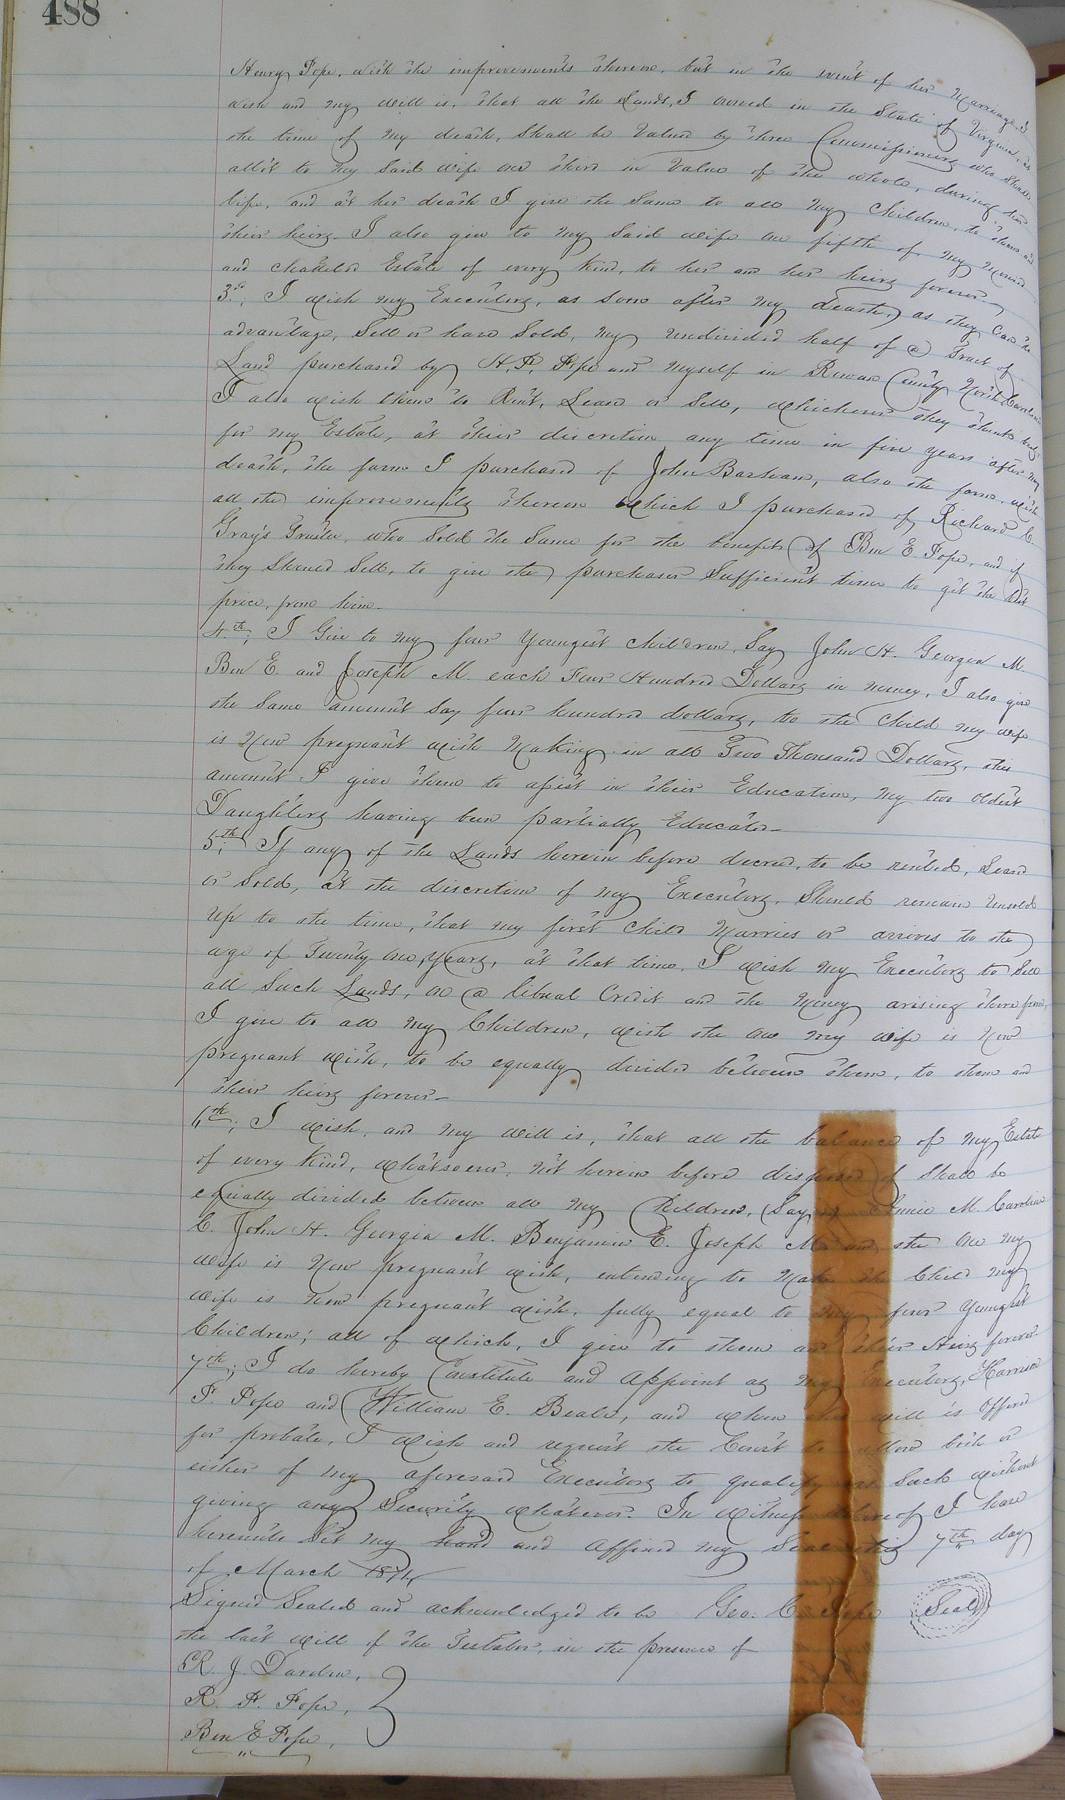 488
Henry Pope, with the improvements thereon, but in the event of her Marriage, I
wish and my will is, that all the Lands, I owned in the State of Virginia, at
the time of my death, Shall be Valued by three Commissioners who Shall
allot to my Said wife one third in Value of the whole, during her
life, and at her death I give the Same to all my Children, to them and
their heirs. I also give to my Said wife one fifth of my
and chattels Estate of every Kind, to her and her heirs forever.
3rd; I wish my Executors, as soon after my death, as they can to
advantage, Sell or have Sold, my undivided half of a Tract of
Land purchased by H. P. Pope and myself in Rowan County North Carolina
I also wish them to Rent, Lease or Sell, whichever they think best
for my Estate, at their discretion any time in five years after my
death, the farm I purchased of John Barham, also the farm with
all the improvements thereon which I purchased of Richard C.
Gray's Trustee, who Sold the Same for the benefit of Ben E Pope, and if
they Should Sell, to give the purchaser Sufficient time to git the best
price, from him.
4th; I Give to my four Youngest children, Say John H. Georgia M.
Ben E. and Joseph M. each Four Hundred Dollars in money, I also give
the Same amount Say four hundred dollars, to the child my wife
is Now pregnant with Making in all Two Thousand Dollars, this
amount I give them to assist in their Education, my two oldest
Daughters having been partially Educated
5th; If any of the Lands herein before decreed, to be rented, Leased
or Sold, at the discretion of my Executors, Should remain unsold
up to the time, that my first child Marries or arrives to the
age of Twenty One, years, at that time, I wish my Executors to Sell
all Such Lands, on a liberal Credit and the Money arising therefrom,
I give to all my Children, with the one my wife is Now
pregnant with, to be equally divided between them, to them and
their heirs forever
6th; I wish, and my will is, that all the balance of my Estate
of every Kind, whatsoever, not herein before disposed of Shall be
equally divided between all my Children, Say M. Caroline
C. John H. Georgia M. Benjamin E. Joseph M. and the one my
wife is Now pregnant with, intending to Make the Child my
wife is now pregnant with, fully equal to my four Youngest
Children; all of which, I give to them and their Heirs forever.
7th; I do hereby Constitute and Appoint as my Executors, Harrison
P. Pope and William E. Beale, and when this will is Offered
for probate, I wish and request the Court to allow both or
either of my aforesaid Executors to qualify as Such without
giving any Security whatever. In witness whereof I have
hereunto Set my hand and Affixed my Seal this 7th day
of March 1874
Signed Sealed and acknowledged to be Geo. C. Pope Seal
the last will of the Testator, in the presence of
R. J. Darden,
R. F. Pope,
Ben E Pope,